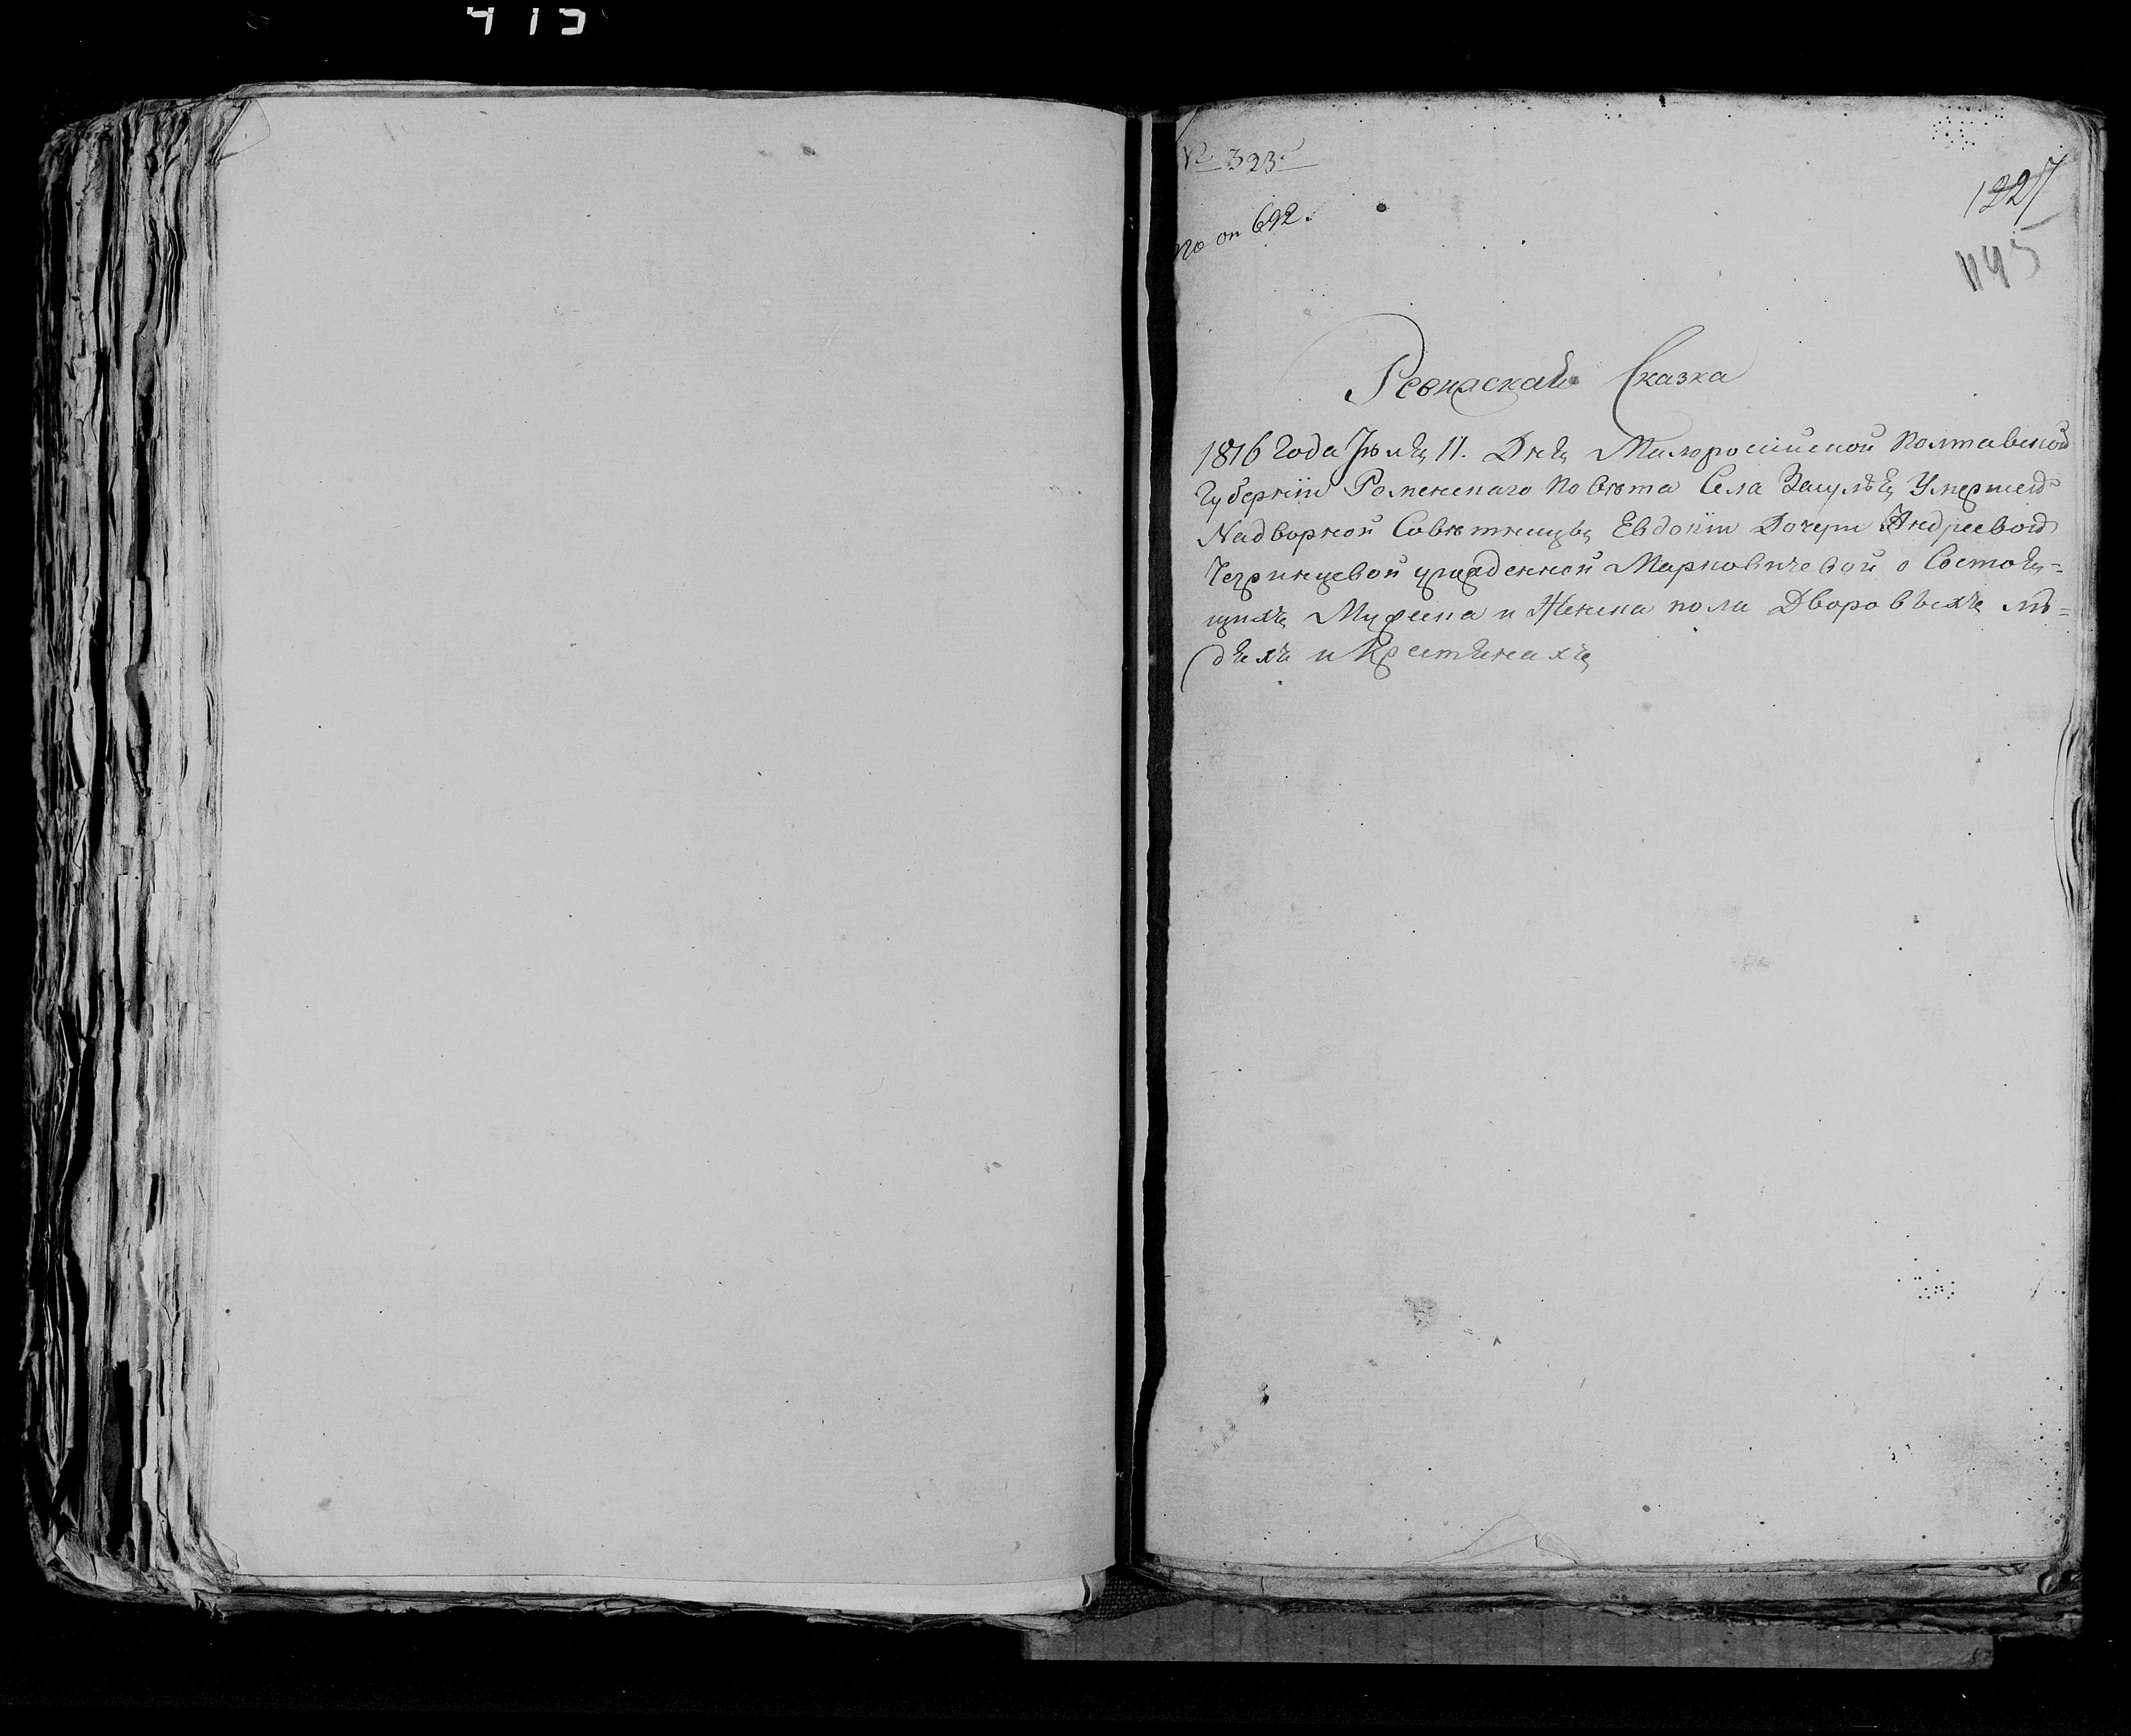 415
№ 323.
по оп 692.
1227
1145
Ревижская Сказка
1816 года Июля 11. Дня Малороссійской Полтавской
Губерніи Роменского Повѣта Села Засулья Умершей
Надворной Совѣтницы Евдокіи Дочери Андреевой
урожденной Марковичевой о Состоя=
щихъ Мужеска и Женска пола Дворовыхъ лю=
дяхъ и Крестянахъ